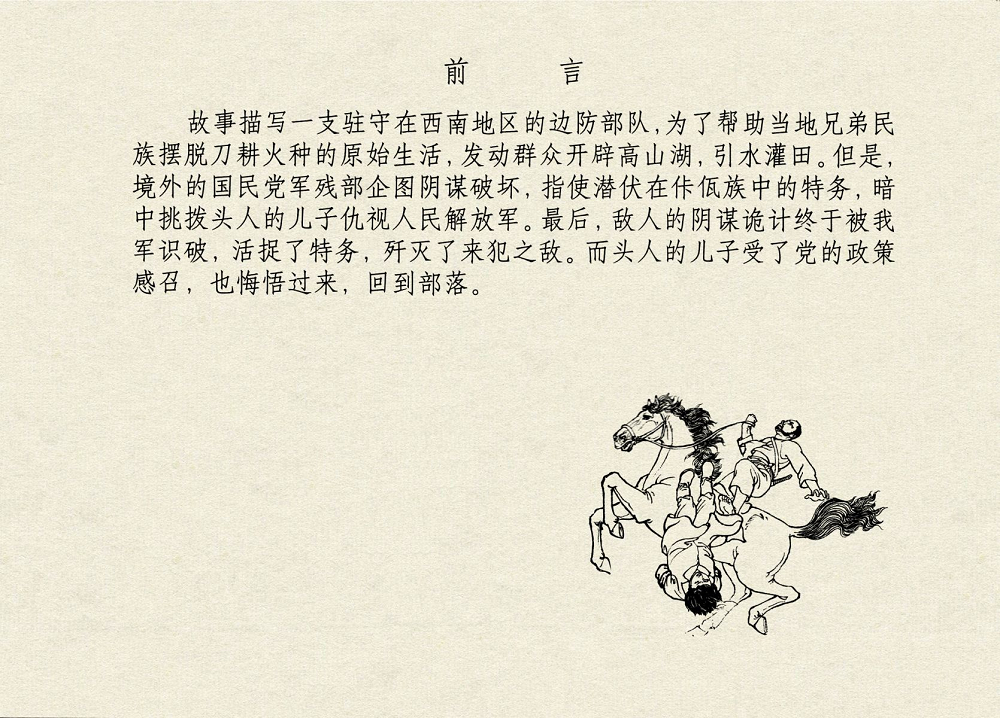 前 言
故事描写一支驻守在西南地区的边防部队,为了帮助当地兄弟民
族摆脱刀耕火种的原始生活,发动群众开辟高山湖,引水灌田。但是,
境外的国民党军残部企图阴谋破坏,指使潜伏在佧佤族中的特务,暗
中挑拨头人的儿子仇视人民解放军。最后,敌人的阴谋诡计终于被我
军识破,活捉了特务,歼灭了来犯之敌。而头人的儿子受了党的政策
感召,也悔悟过来,回到部落。